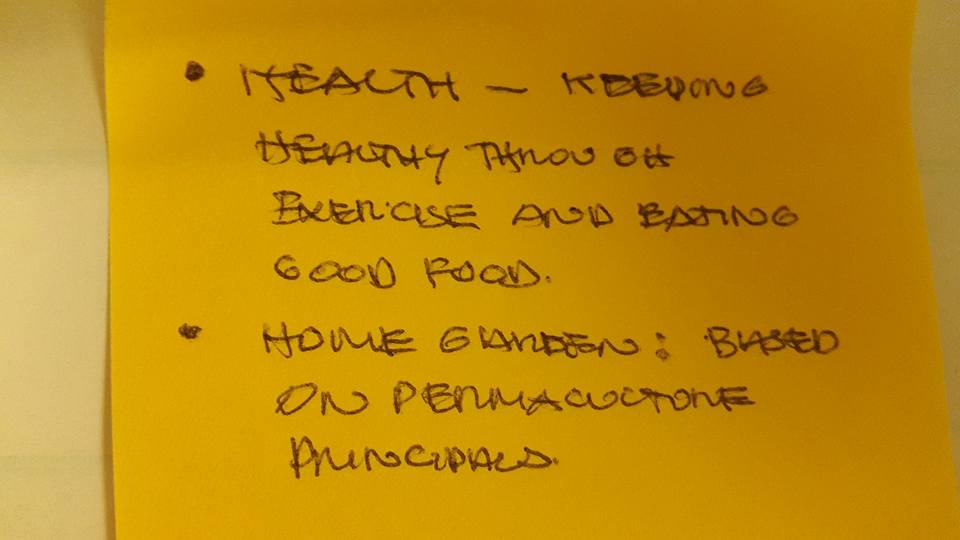 • HEALTH – KEEPING
HEALTHY THROUGH
EXERCISE AND EATING
GOOD FOOD.
• HOME GARDEN: BASED
ON PERMACULTURE
PRINCIPALS.